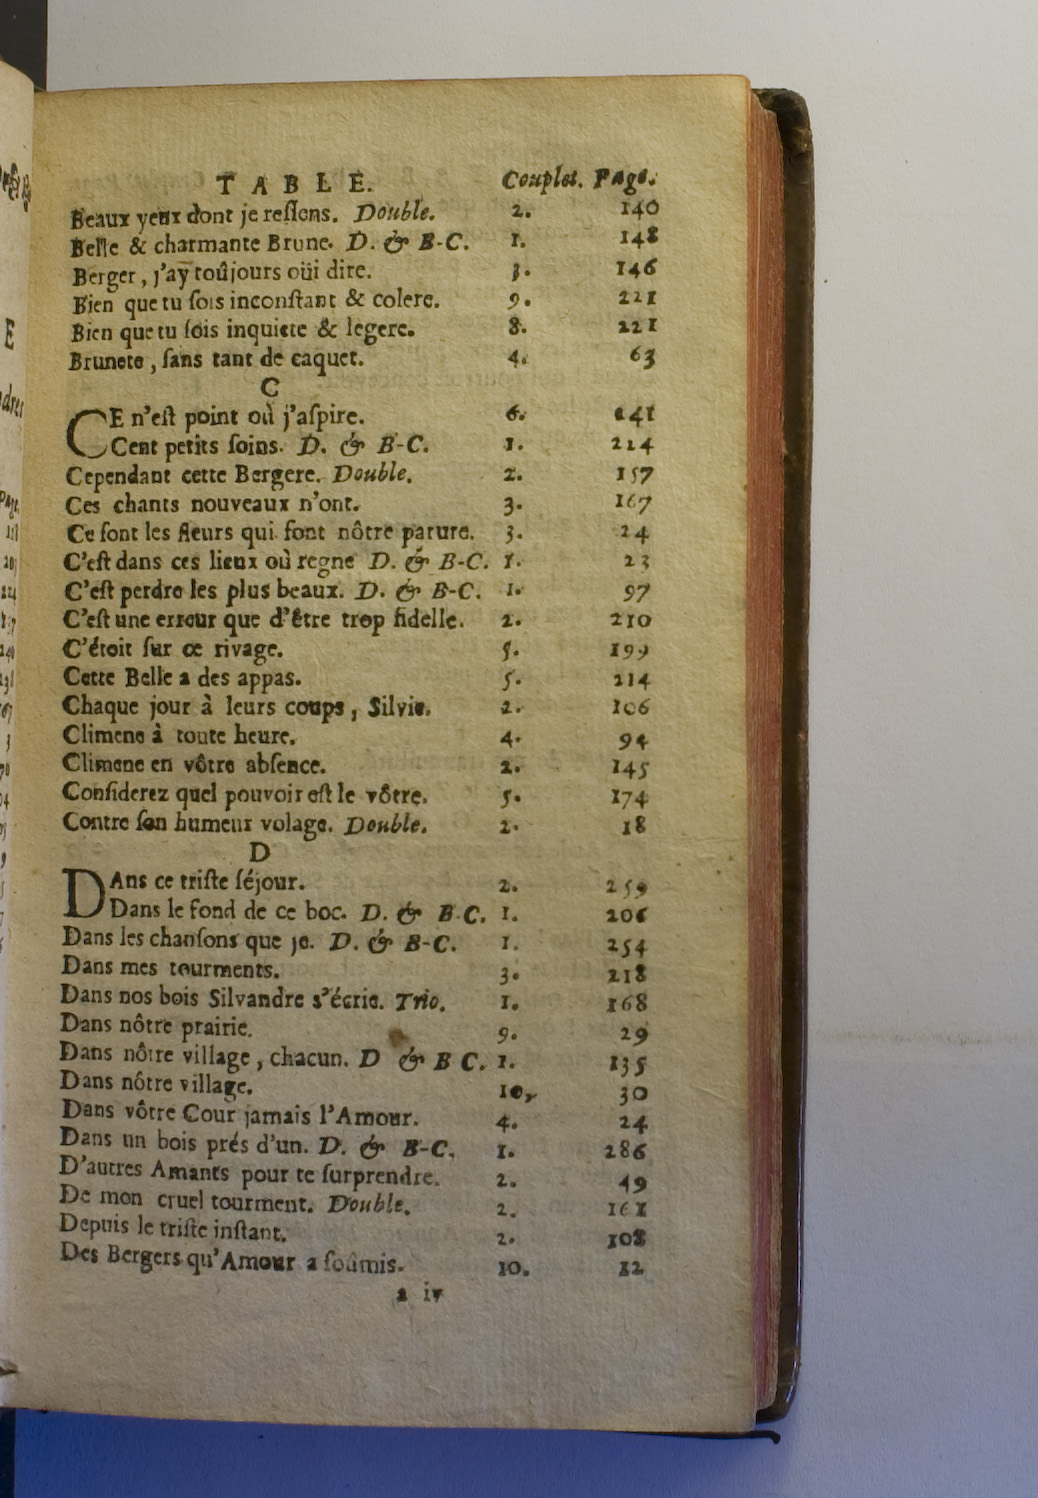 TABLE. Couplet. Page.
Beaux yeux dont je reſſens. Double. 2. 140
Belle & charmante Brune. D. & B-C. 1. 148
Berger, j'ay toûjours oüi dire. 3. 146
Bien que tu ſois inconſtant & colere. 9. 221
Bien que tu ſois inquiete & legere. 8. 221
Brunete, ſans tant de caquet. 4. 63
C
CE n'eſt point où j'aſpire. 6. 241
Cent petits ſoins. D. & B-C. 1. 214
Cependant cette Bergere. Double. 2. 157
Ces chants nouveaux n'ont. 3. 167
Ce ſont les fleurs qui font nôtre parure. 3. 24
C'eſt dans ces lieux où regne D. & B-C. 1. 23
C'eſt perdre les plus beaux. D. & B-C. 1. 97
C'eſt une erreur que d'être trop fidelle. 2. 210
C'étoit ſur ce rivage. 5. 199
Cette Belle a des appas. 5. 214
Chaque jour à leurs coups, Silvie. 2. 106
Climene à toute heure. 4. 94
Climene en vôtre abſence. 2. 145
Conſiderez quel pouvoir eſt le vôtre. 5. 174
Contre ſon humeur volage. Double. 2. 18
D
DAns ce triſte ſéjour. 2. 259
Dans le fond de ce boc. D. & B-C. 1. 206
Dans les chanſons que je. D. & B-C. 1. 254
Dans mes tourments. 3. 218
Dans nos bois Silvandre s'écrie. Trio. 1. 168
Dans nôtre prairie. 9. 29
Dans nôtre village, chacun. D & B C. 1. 135
Dans nôtre village. 10, 30
Dans vôtre Cour jamais l'Amour. 4. 24
Dans un bois prés d'un. D. & B-C. 1. 286
D'autres Amants pour te ſurprendre. 2. 49
De mon cruel tourment. Double. 2. 161
Depuis le triſte inſtant. 2. 108
Des Bergers qu'Amour a ſoûmis. 10. 12
a iv